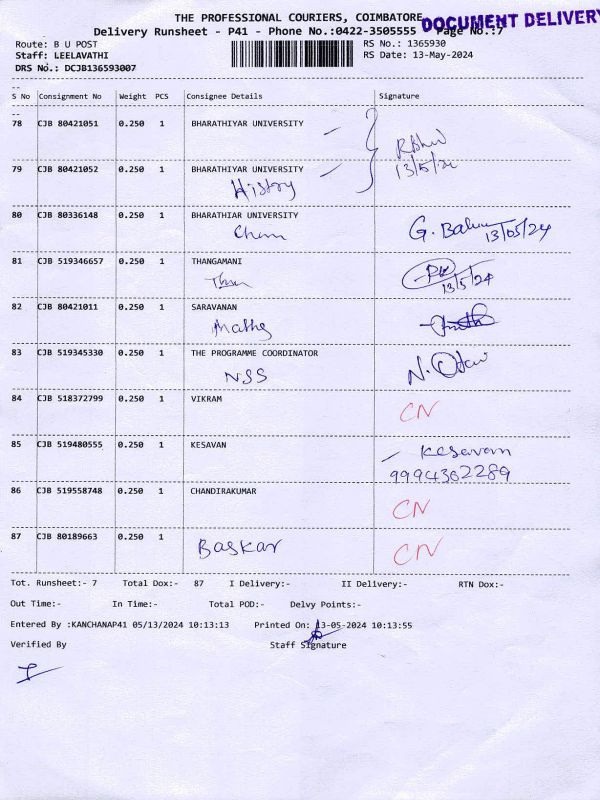 THE PROFESSIONAL COURIERS, COIMBATORE
DOCUMENT DELIVERY
Delivery Runsheet - P41 - Phone No.:0422-3505555 Page No.:7
Route: B U POST
RS No.: 1365930
Staff: LEELAVATHI
RS Date: 13-May-2024
DRS No.: DCJB136593007
S No Consignment No Weight PCS Consignee Details Signature
78 CJB 80421051 0.250 1 BHARATHIYAR UNIVERSITY
79 CJB 80421052 0.250 1 BHARATHIYAR UNIVERSITY
13/5/24
History
80 CJB 80336148 0.250 1 BHARATHIAR UNIVERSITY
Chem
G. 13/05/24
81 CJB 519346657 0.250 1 THANGAMANI
13/5/24
82 CJB 80421011 0.250 1 SARAVANAN
Maths
83 CJB 519345330 0.250 1 THE PROGRAMME COORDINATOR
NSS
N.
84 CJB 518372799 0.250 1 VIKRAM
CN
85 CJB 519480555 0.250 1 KESAVAN
Kesavan
9994362289
86 CJB 519558748 0.250 1 CHANDIRAKUMAR
CN
87 CJB 80189663 0.250 1
Baskar
CN
Tot. Runsheet:- 7 Total Dox:- 87 I Delivery:- II Delivery:- RTN Dox:-
Out Time:- In Time:- Total POD:- Delvy Points:-
Entered By :KANCHANAP41 05/13/2024 10:13:13 Printed On: 13-05-2024 10:13:55
Verified By Staff Signature